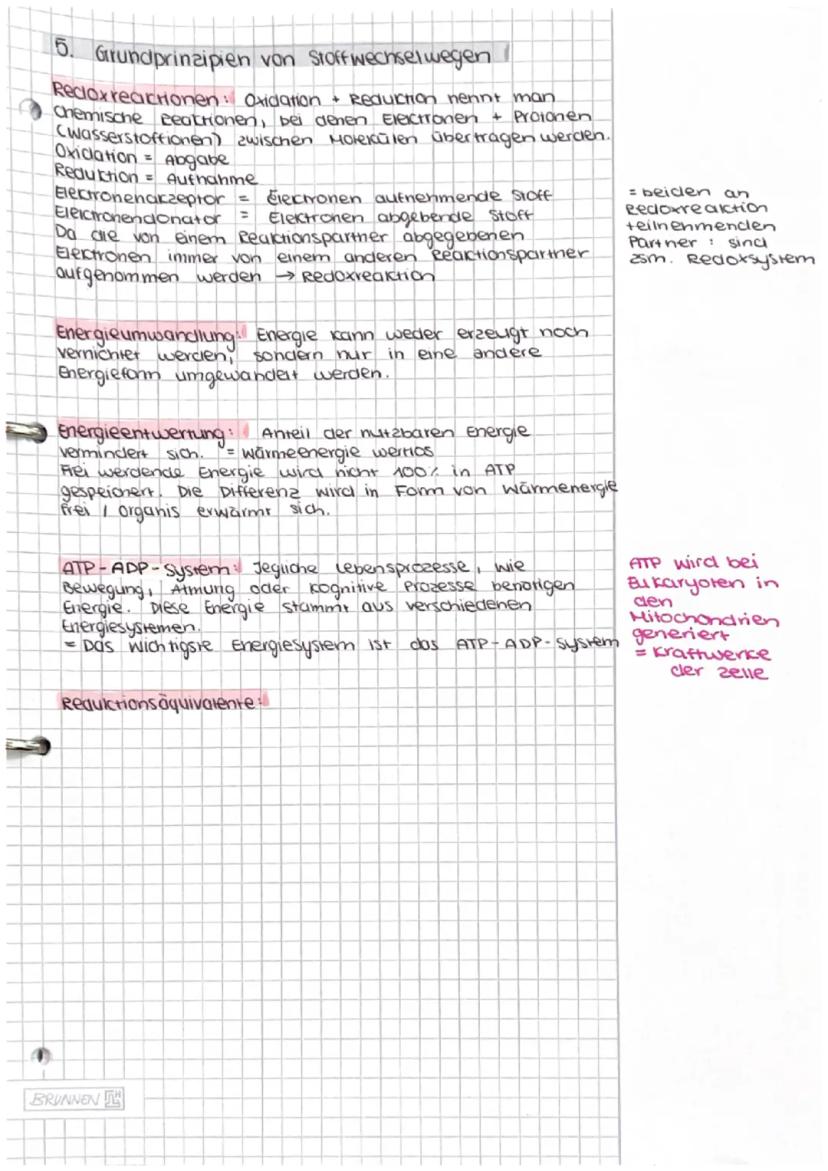 5. Grundprinzipien von Stoffwechselwegen
Redoxreactionen: Oxidation + Reduction nennt man
chemische Reaktionen, bei denen Electronen + Protonen
(Wasserstoffionen) zwischen Molekülen übertragen werden.
Oxidation = Abgabe
Reduktion = Aufnahme
Elektronenakzeptor = Electronen aufnehmende Stoff
Elektronendonator = Elektronen abgebende Stoff
Da die von einem Reaktionspartner abgegebenen
Elektronen immer von einem anderen Reactionspartner
aufgenommen werden → Redoxreaktion
= beiden an
Redoxreaktion
teilnehmenden
Partner : sind
zsm. Redoxsystem
Energieumwandlung: Energie kann weder erzeugt noch
vernichtet werden, sondern nur in eine andere
Energieform umgewandelt werden.
Energieentwertung: Anteil der nutzbaren Energie
vermindert sich. = Wärmeenergie wertlos
Frei werdende Energie wird nicht 100% in ATP
gespeichert. Die Differenz wird in Form von Wärmenergie
frei / Organis erwärmt sich.
ATP-ADP-System: Jegliche Lebensprozesse, wie
Bewegung, Atmung oder kognitive Prozesse benötigen
Energie. Diese Energie stammt aus verschiedenen
Energiesystemen.
= Das wichtigste Energiesystem ist das ATP-ADP-System
ATP wird bei
Eukaryoten in
den
Mitochondrien
generiert
= Kraftwerke
der Zelle
Reduktionsäquivalente:
BRUNNEN